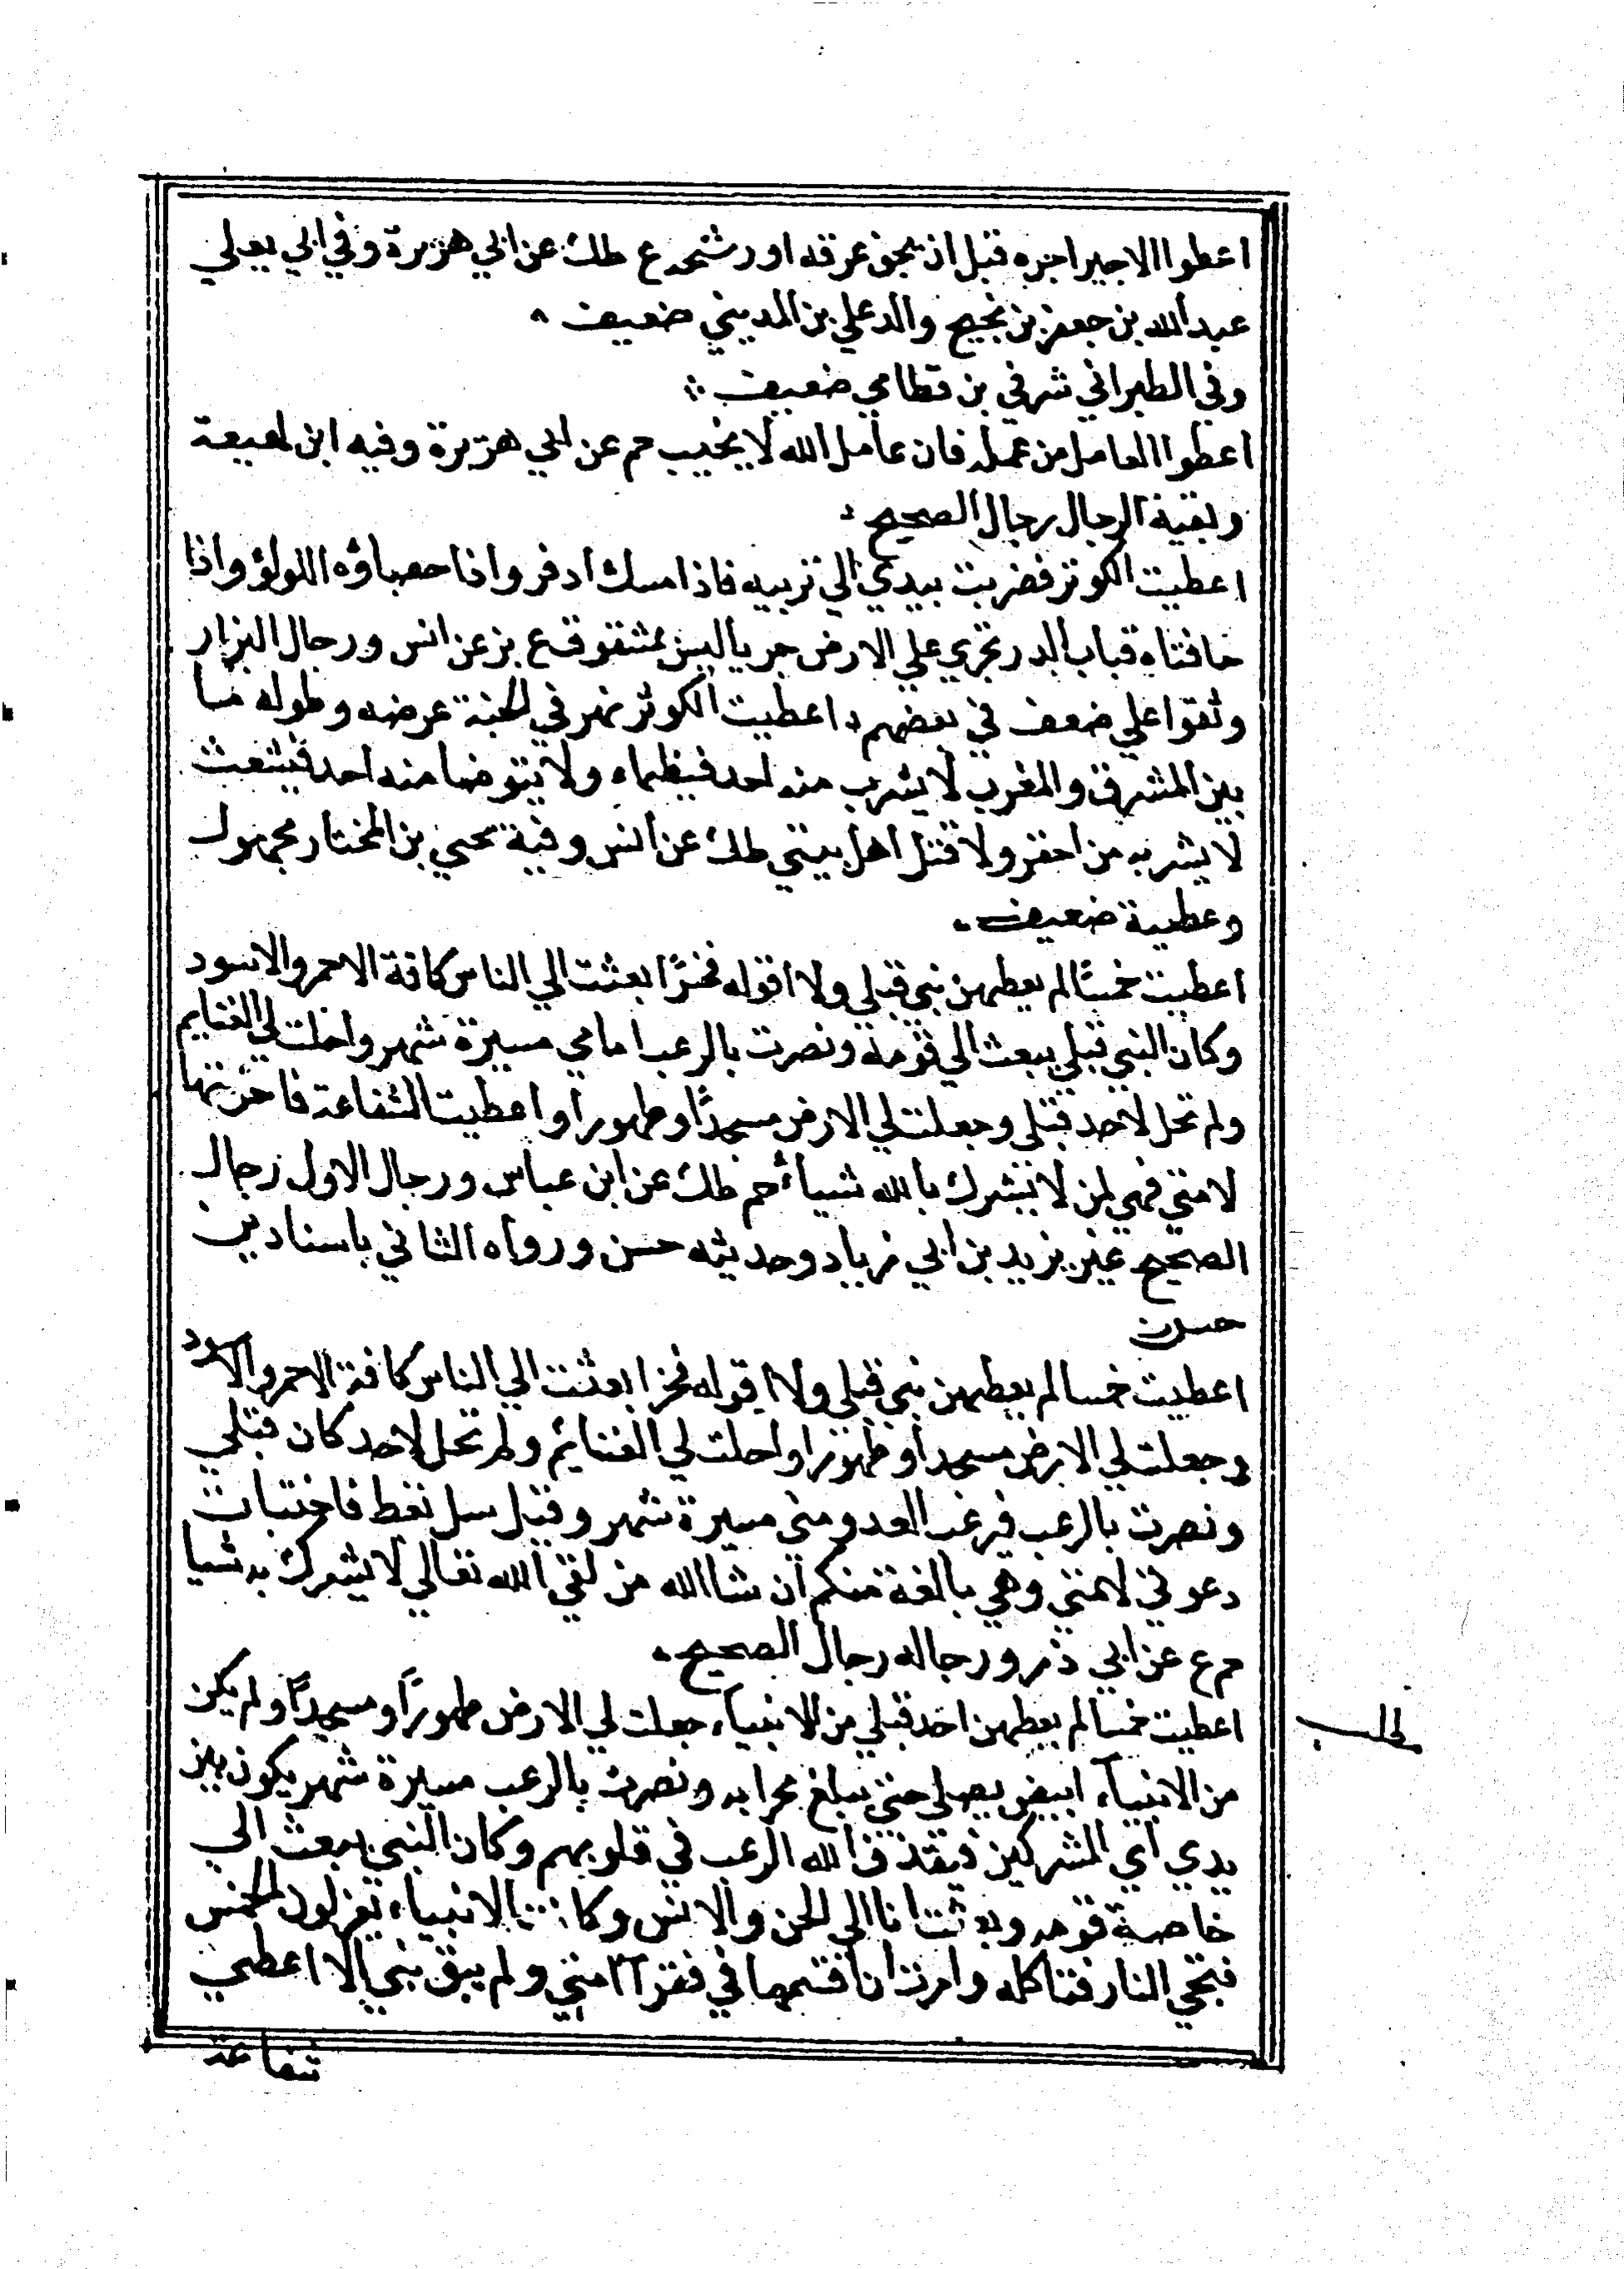 اعطوا الاجير اجره قبل ان يجف عرقه او رشحه ع طك عن ابي هريرة وفي ابي يعلي
عبد الله بن جعفر بن نجيح والد علي بن المديني ضعيف
وفي الطبراني شرقي بن قطامي ضعيف
اعطوا العامل من عمله فان عامل الله لا يخيب حم عن ابي هريرة وفيه ابن لهيعة
وبقية الرجال رجال الصحيح
اعطيت الكوثر فضربت بيدي الي تربيه فاذا مسك ادفر واذا حصباؤه اللولؤ واذا
حافتاه قباب الدر تجري علي الارض جريا ليس بمشقوق ع بز عن انس ورجال البزار
وثقوا علي ضعف في بعضهم اعطيت الكوثر نهر في الجنة عرضه وطوله ما
بين المشرق والمغرب لا يشرب منه احد فيظماء ولا يتوضا منه احد فيشعث
لا يشربه من اخفر ولا قتل اهل بيتي طك عن انس وفية يحيي بن المختار مجهول
وعطية ضعيف
اعطيت خمسًا لم يعطهن نبي قبلي ولا اقوله فخرًا بعثت الي الناس كافة الاحمر والاسود
وكان النبي قبلي يبعث الي قومه ونصرت بالرعب امامي مسيرة شهر واحلت لي الغنايم
ولم تحل لاحد قبلي وجعلت لي الارض مسجدًا وطهورا واعطيت الشفاعة فاخرتها
لامتي فهي لمن لا يشرك بالله شياء حم طك عن ابن عباس ورجال الاول رجال
الصحيح غير يزيد بن ابي زياد وحديثه حسن ورواه الثاني باسنادين
حسن
اعطيت خمسا لم يعطهن نبي قبلي ولا اقوله فخرا بعثت الي الناس كافة الاحمر والاسود
وجعلت لي الارض مسجدا وطهورا واحلت لي الغنايم ولم تحل لاحد كان قبلي
ونصرت بالرعب فيرعب العدو مني مسيرة شهر وقيل سل تعط فاختبات
دعوتي لامتي وهي بالغة منكم ان شا الله من لقي الله تعالي لا يشرك به شيا
حم ع عن ابي ذر ورجاله رجال الصحيح
اعطيت خمسا لم يعطهن احد قبلي من الانبياء جعلت لي الارض طهورًا ومسجدًا ولم يكن
من الانبياء ابيض يصلي حتي يبلغ محرابه ونصرت بالرعب مسيرة شهر يكون بين
يدي اي المشركين فيقذف الله الرعب في قلوبهم وكان النبي يبعث الي
خاصة قومه وبعثت انا الي الجن والانس وكانت الانبياء يعزلون الخمس
فتجي النار فتاكله وامرت ان اقسمها في فقرآ امتي ولم يبق نبي الا اعطي
شفاعة